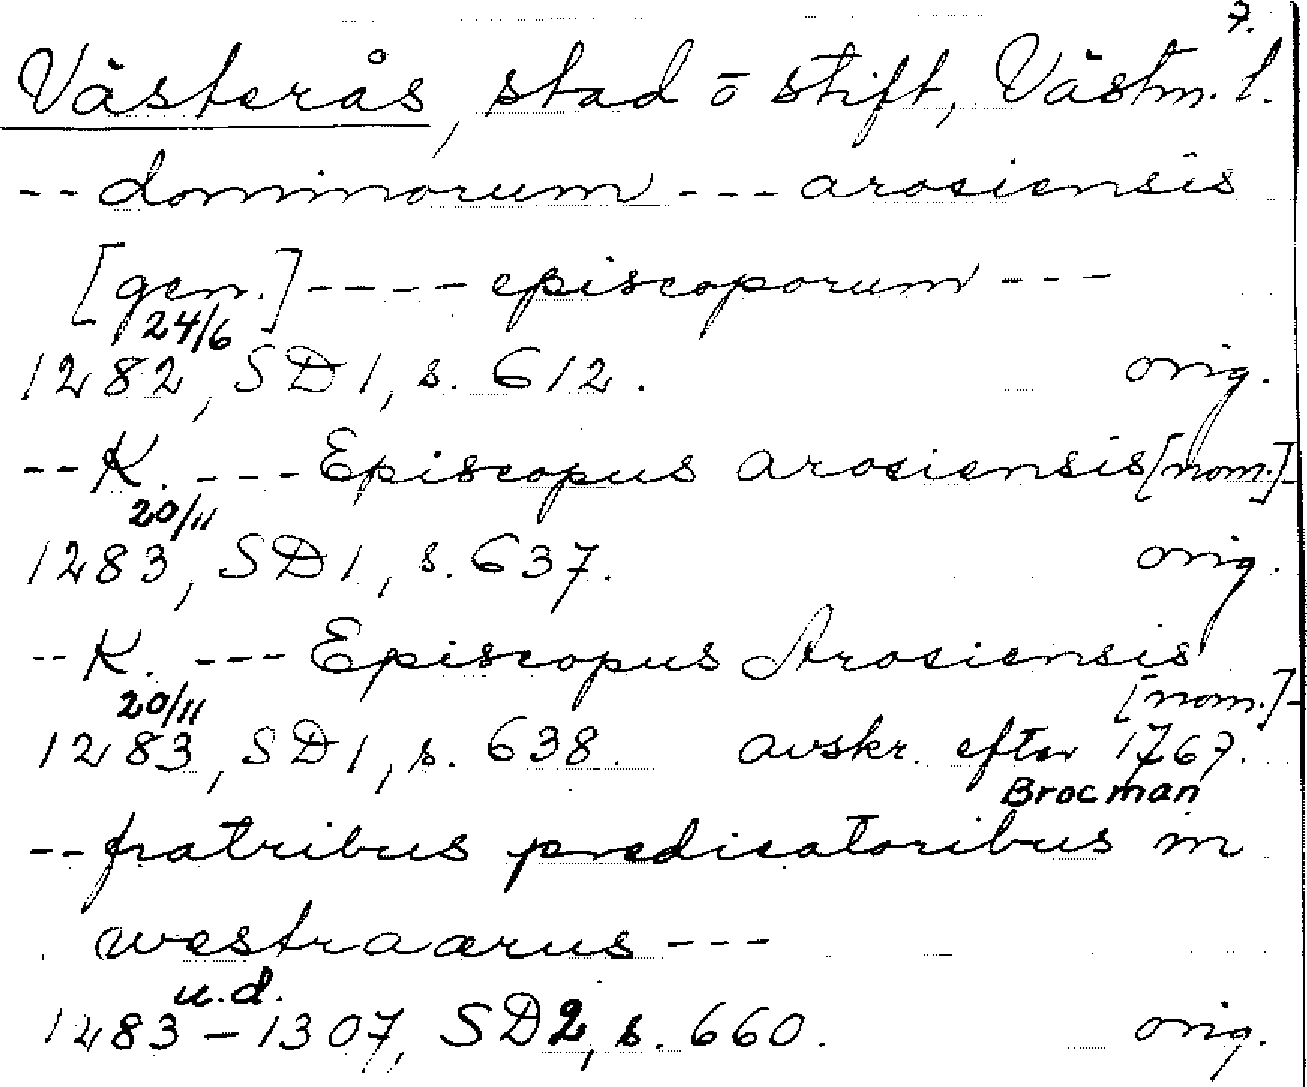 7.
Västerås, stad o stift, Västm. l.
-- dominorum --- arosiensis
[gen.] ---- episcoporum ---
24/6
1282, SD 1, s. 612. orig.
-- K. --- Episcopus arosiensis [nom.] -
20/11
1283, SD 1, s. 637. orig.
-- K. --- Episcopus Arosiensis
[nom.] -
20/11
1283, SD 1, s. 638. avskr. efter 1767.
Brocman
-- fratribus predicatoribus in
westraarus ---
u.d.
1283 - 1307, SD 2, s. 660. orig.